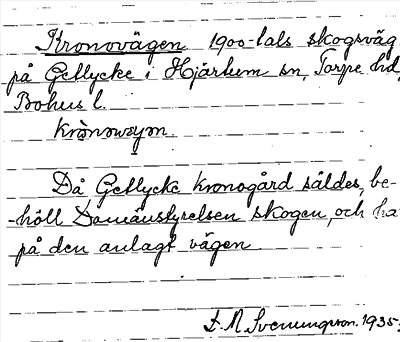 Kronovägen 1900-tals skogsväg
på Gellycke i Hjärtum sn, Torpe hd,
Bohus l.
Då Gellycke kronogård såldes, be-
-höll Domänstyrelsen skogen, och ha
på den anlagt vägen
F. M. Svenungsson. 1935.